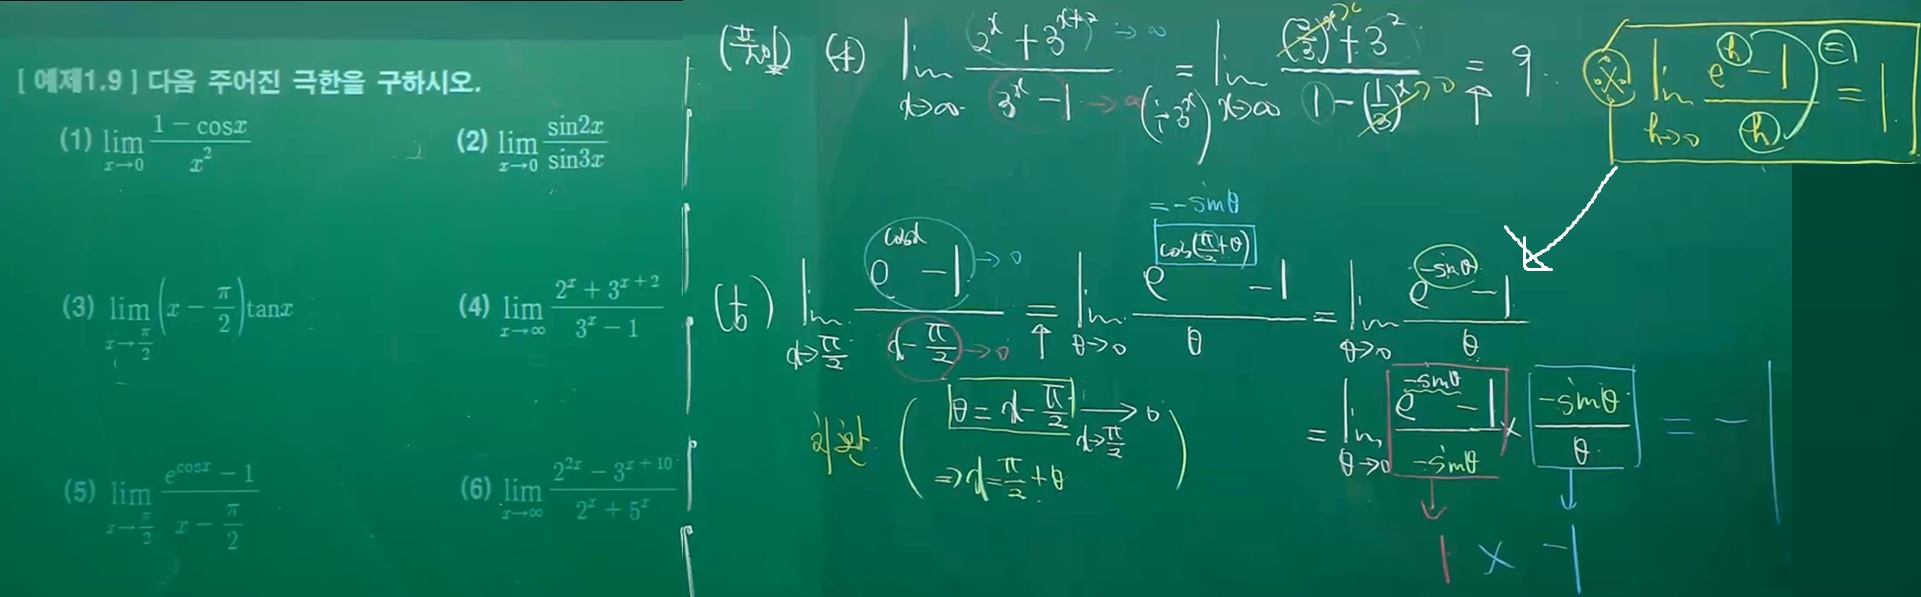 [ 예제1.9 ] 다음 주어진 극한을 구하시오.
(1) lim x→0 (1 − cosx)/x²
(2) lim x→0 sin2x/sin3x
(3) lim x→π/2 (x − π/2)tanx
(4) lim x→∞ (2^x + 3^(x+2))/(3^x − 1)
(5) lim x→π/2 (e^cosx − 1)/(x − π/2)
(6) lim x→∞ (2^(2x) − 3^(x+10))/(2^x + 5^x)
(4) lim x→∞ (2^x + 3^(x+2) → ∞)/(3^x − 1 → ∞) = (÷3^x) lim x→∞ ((2/3)^x + 3²)/(1 − (1/3)^x → 0) = ↑ 9.
※ lim h→0 (e^h − 1)/h = 1.
= −sinθ
lim x→π/2 (e^cosx − 1 → 0)/(x − π/2 → 0) = ↑ lim θ→0 (e^cos(π/2+θ) − 1)/θ = lim θ→0 (e^−sinθ − 1)/θ
치환 ( θ = x − π/2 → 0 x→π/2
⇒ x = π/2 + θ )
= lim θ→0 (e^−sinθ − 1)/−sinθ × −sinθ/θ = −1
↓ ↓
1 × −1